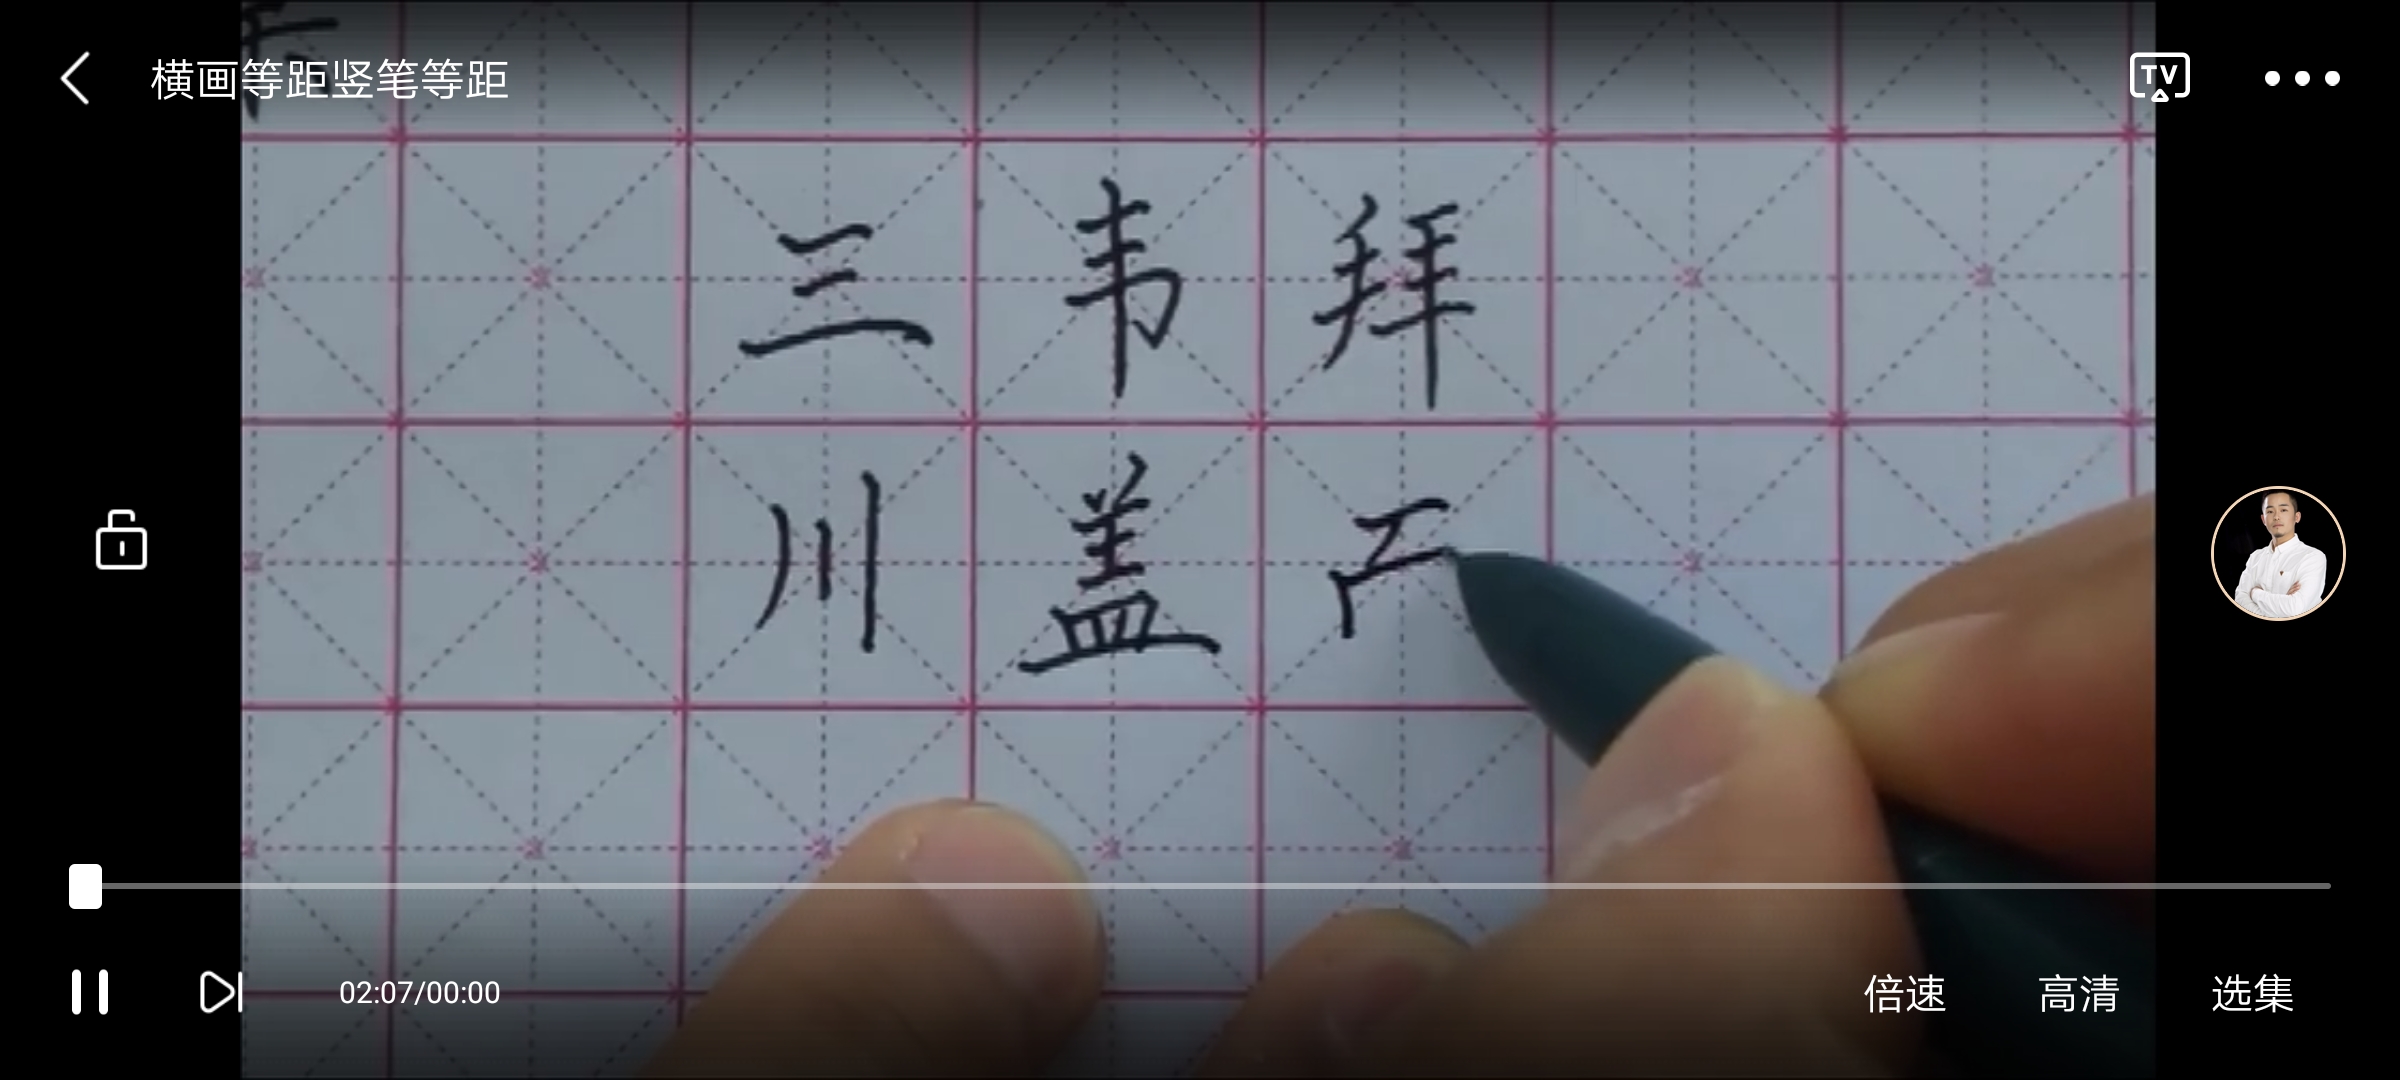 横画等距竖笔等距
TV
三韦拜
川盖
02:07/00:00
倍速 高清 选集